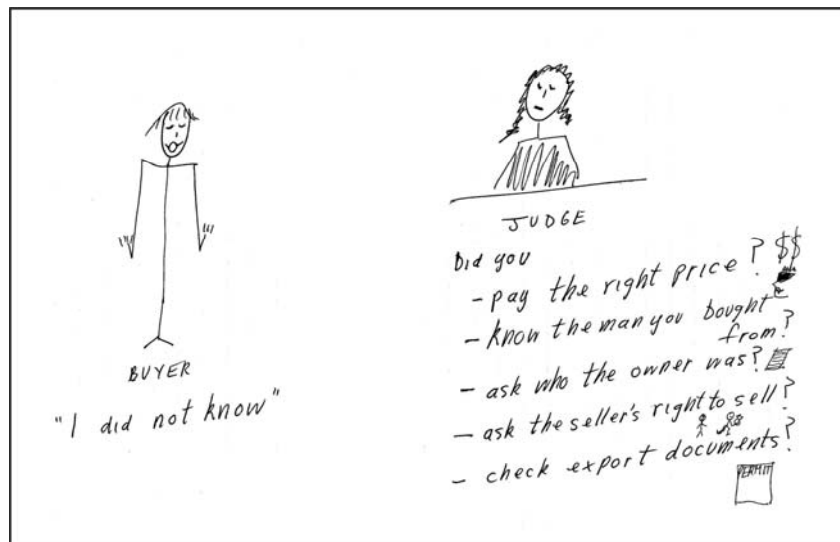 BUYER
"I did not know"
JUDGE
Did you
- pay the right price? $$
- know the man you bought
from?
- ask who the owner was?
- ask the seller's right to sell?
- check export documents?
PERMIT